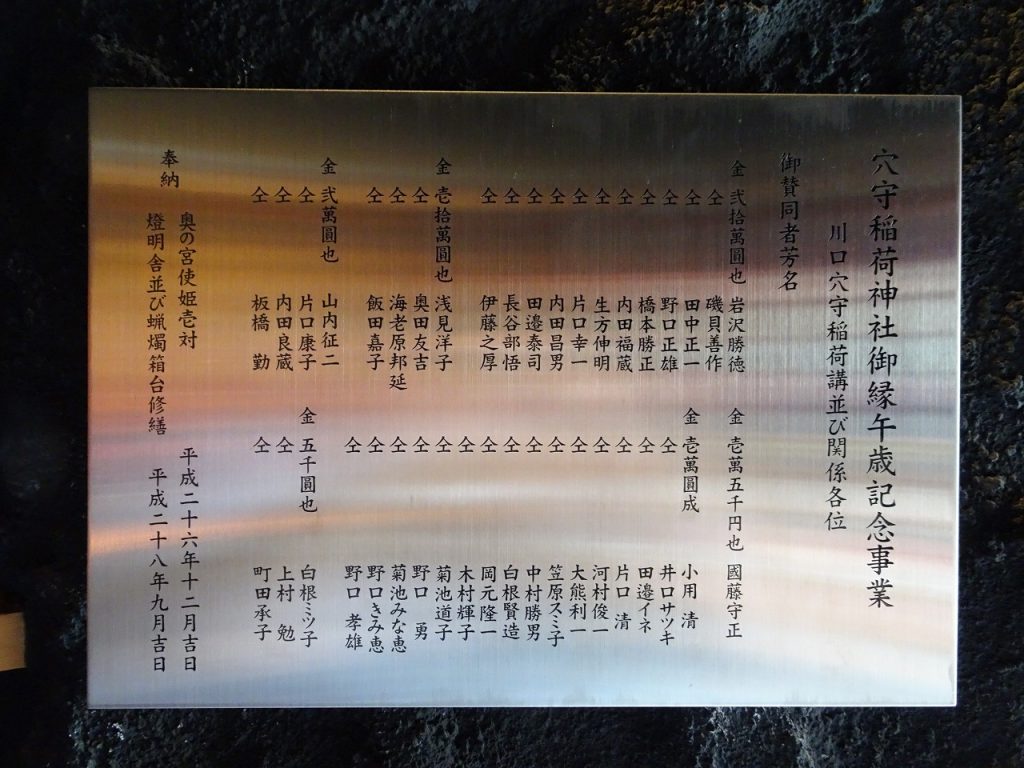 穴守稲荷神社御縁午歳記念事業
川口穴守稲荷講並び関係各位
御賛同者芳名
金 弐拾萬圓也 岩沢勝徳
仝 磯貝善作
仝 田中正一
仝 野口正雄
仝 橋本勝正
仝 内田福蔵
仝 生方伸明
仝 片口幸一
仝 内田昌男
仝 田邉泰司
仝 長谷部悟
仝 伊藤之厚
金 壱拾萬圓也 浅見洋子
仝 奥田友吉
仝 海老原邦延
仝 飯田嘉子
金 弐萬圓也 山内征二
仝 片口康子
仝 内田良蔵
仝 板橋 勤
金 壱萬五千円也 國藤守正
金 壱萬圓成 小用 清
仝 井口サツキ
仝 田邉イネ
仝 片口 清
仝 河村俊一
仝 大熊利一
仝 笠原スミ子
仝 中村勝男
仝 白根賢造
仝 岡元隆一
仝 木村輝子
仝 菊池道子
仝 野口 勇
仝 菊池みな恵
仝 野口きみ恵
仝 野口 孝雄
金 五千圓也 白根ミツ子
仝 上村 勉
仝 町田承子
奉納
奥の宮使姫壱対 平成二十六年十二月吉日
燈明舎並び蝋燭箱台修繕 平成二十八年九月吉日